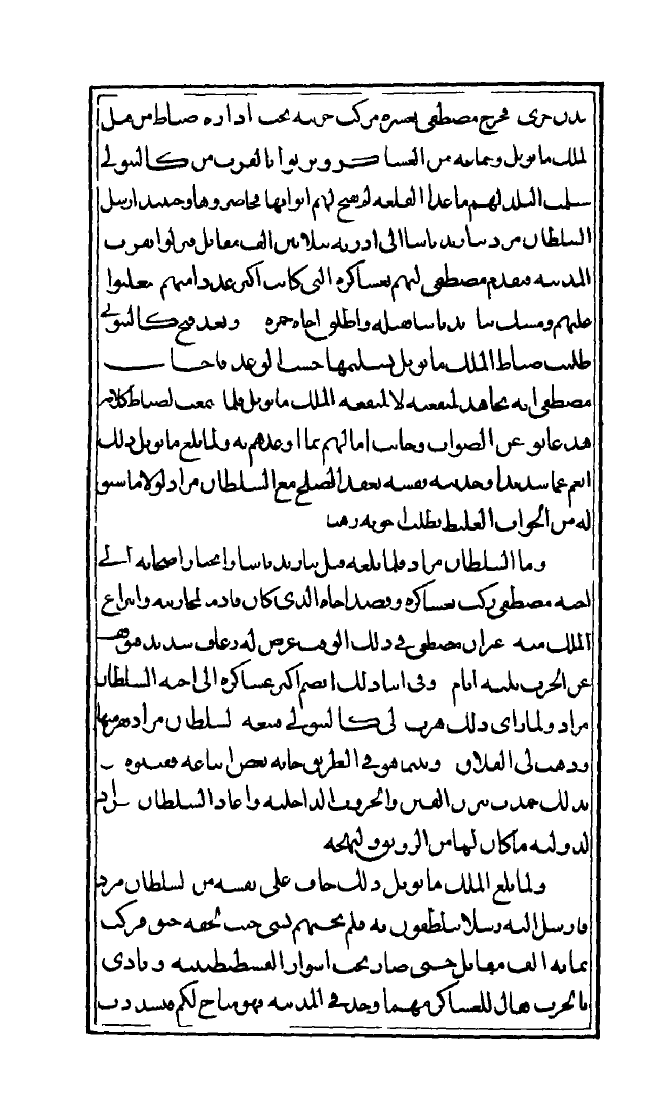 فخرج مصطفى بعشرة مراكب حربيه تحت اداره ضابط من قبل
الملك مانويل وجمله من العساكر ونزلوا بالقرب من كاليبولى
البلد لهم ما عدا القلعه لم تفتح لهم ابوابها فحاصروها وحينئذ ارسل
السلطان مراد بايزيد باشا الى ادرنه بثلاثين الف مقاتل فنزلوا بقرب
المدينه فتقدم مصطفى اليهم بعساكره التى كانت اكثر عددا منهم فتغلبوا
عليهم ومسك بايزيد باشا فقتله واطلق اخاه حمزه وبعد فتح كاليبولى
طلب ضابط الملك مانويل تسليمها حسب الوعد فاجاب
مصطفى انه يجاهد لمنفعته لا لمنفعة الملك مانويل فلما الضابط كلامه
عن الصواب وخابت امالهم بما اوعدهم به ولما بلغ مانويل ذلك
نفسه بعقد الصلح مع السلطان مراد لولا ما سبق
له من الجواب الغليظ بطلب اخويه رهنا
واما السلطان مراد فلما بلغه قتل بايزيد باشا وانحياز اصحابه الى
مصطفى ركب بعساكره وقصد اخاه الذى كان قادم لمحاربته وانتزاع
الملك منه غير ان مصطفى فى ذلك الوقت عرض له رعاف شديد
عن الحرب ثلثة ايام وفى اثنا ذلك انضم اكثر عساكره الى اخيه السلطان
مراد ولما راى ذلك هرب الى كاليبولى فتبعه السلطان مراد فهرب منها
وذهب الى الفلاق وبينما هو فى الطريق خانه بعض اتباعه فقتلوه
بذلك خمدت نيران الفتن والحروب الداخليه واعاد السلطان مراد
لدولته ما كان لها من الرونق والبهجه
ولما بلغ الملك مانويل ذلك خاف على نفسه من السلطان مراد
فارسل اليه رسلا يتلطفون به فلم يجبهم بشى حتى فركب
بمايه الف مقاتل حتى صار تحت اسوار القسطنطينيه ونادى
بالحرب وقال للعساكر مهما وجد فى المدينه فهو مباح لكم